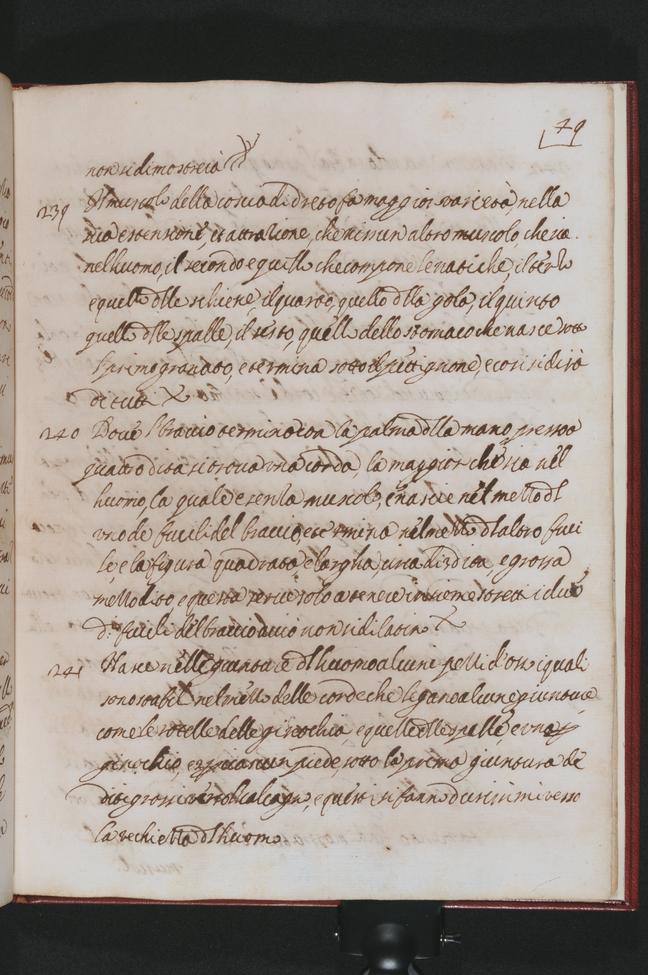 79
non si dimostrerà
239 Il muscolo della coscia di dreto fa maggior varietà, nella
sua estensione, et attratione, che nissun altro muscolo che sia
nel huomo, il secondo e quello che compone le natiche, il terzo
e quello delle schiene, il quarto, quello della gola, il quinto
quello delle spalle, il sesto, quello dello stomaco che nasce sotto
il primo granato, e termina sotto il pettignone, e cosi si dirà
di tutti
240 Dove il braccio termina con la palma della mano presso a
quatro dita si trova una corda, la maggior che sia nel
huomo, la quale e senza muscolo, e nascie nel mezzo dl
uno de fucili del braccio e termina nel mezzo dl altro fuci
le, e la figura quadrata e largha, circa di 3 dita e grossa
mezzo dito e questa serve solo a tenere insieme stretti i due
d. fucili del braccio acio non si dilatin
241 Nasce nelle giunture dl huomo alcune pezzi d'osso i quali
sono stabili nel mezzo delle corde che legano alcune giunture
come le rotelle delle ginochia, e quelle delle spalle, e
ginochio, e piede, sotto la prima giuntura de
diti grossi verso il calcagno, e questi si fanno durissimi verso
la vechiezza dl huomo
muscoli